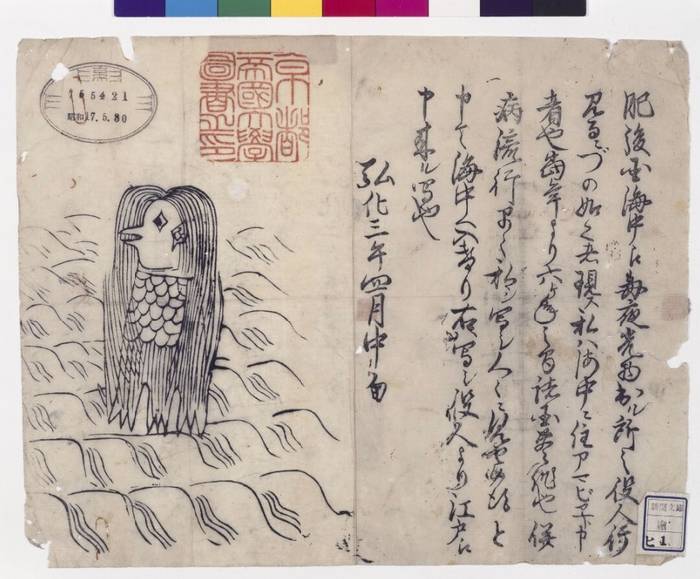 肥後国海中江毎夜光物出ル所之役人行
見るニづの如く者現ス私ハ海中ニ住アマビヱト申
者也當年より六ヶ年之間諸国豊作也併
病流行早々私ヲ写シ人々ニ見せ候得と
申て海中へ入けり右写シ役人より江戸江
申来ル写也
弘化三年四月中旬
京都
帝國大學
圖書之印
165421
昭和17.5.30
新聞文庫